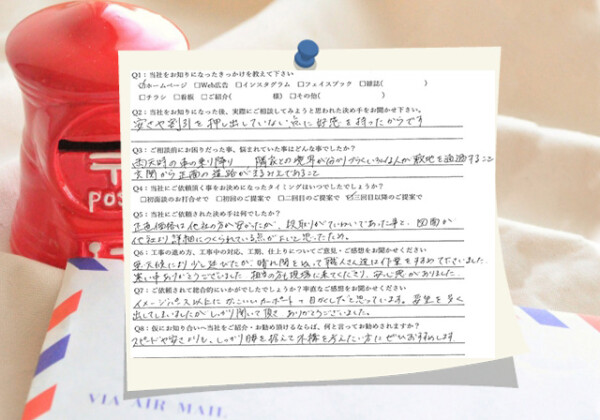 Q1：当社をお知りになったきっかけを教えて下さい
☑ホームページ □Web広告 □インスタグラム □フェイスブック □雑誌( )
□チラシ □看板 □ご紹介( 様) □その他( )
Q2：当社をお知りになった後、実際にご相談してみようと思われた決め手をお聞かせ下さい。
安さや割引を押し出していない点に好感を持ったからです
Q3：ご相談前にお困りだった事、悩まれていた事はどんな事でしたか？
雨天時の車の乗り降り、隣家との境界が分かりづらくいろんな人が敷地を通過すること
玄関から正面の道路がまるみえであること
Q4：当社にご依頼頂く事をお決めになったタイミングはいつでしたでしょうか？
□初面談のお打合せで □初回のご提案で □二回目のご提案で ☑三回目以降のご提案で
Q5：当社にご依頼された決め手は何でしたか？
正直価格は他社の方が安かったが、段取りがていねいであった事と、図面が
他社より詳細につくられている点がよいと思ったため。
Q6：工事の進め方、工事中の対応、工期、仕上りについてご意見・ご感想をお聞かせください
悪天候により少し延びたが、晴れ間を祝って職人さん達は作業をすすめて下さいました
暑い中ありがとうございました 担当の方も現場に来てくださり、安心感がありました。
Q7：ご依頼されて総合的にいかがでしたでしょうか？率直なご感想をお聞かせください
イメージパース以上にかっこいいカーポート・目かくしだと思っています。要望を多く
出してしまいましたがしっかり聞いて頂き ありがとうございました。
Q8：仮にお知り合いへ当社をご紹介・お勧め頂けるならば、何と言ってお勧めされますか？
スピードや安さよりも、しっかり腰を据えて外構を考えたい方にぜひおすすめします
POS
VIA AIR MAIL